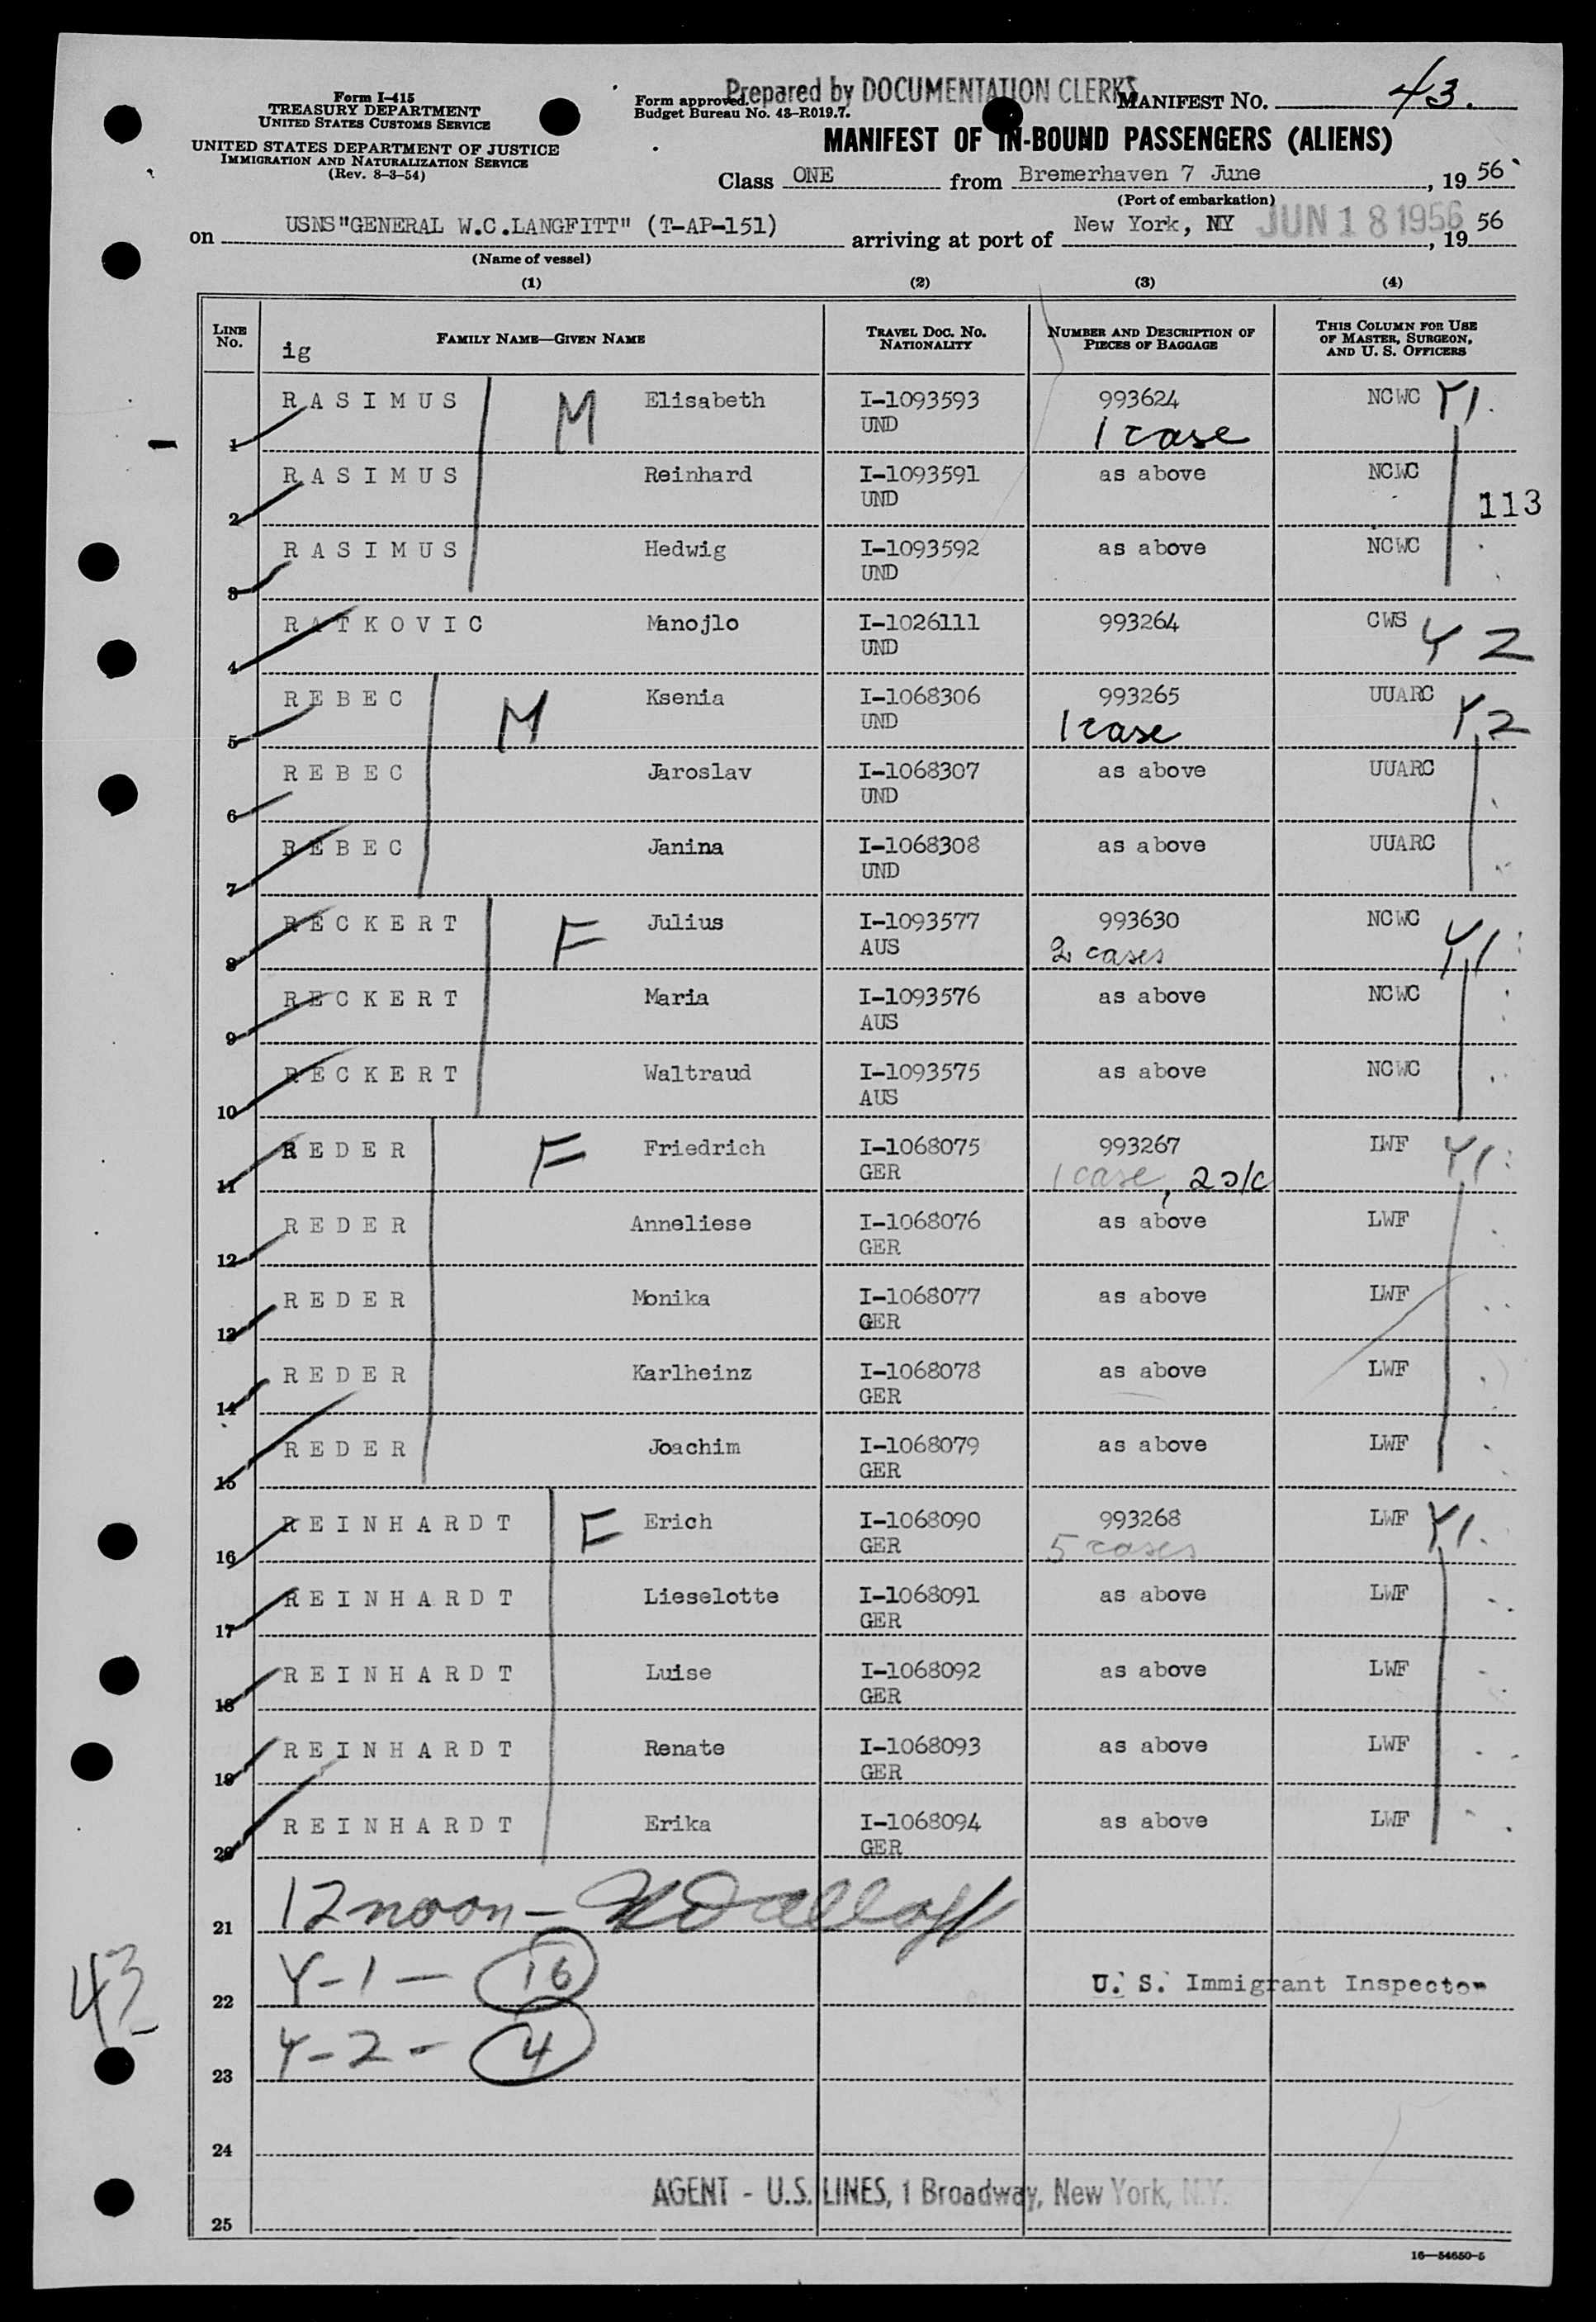 Form I-415
TREASURY DEPARTMENT
UNITED STATES CUSTOMS SERVICE
UNITED STATES DEPARTMENT OF JUSTICE
IMMIGRATION AND NATURALIZATION SERVICE
(Rev. 8-3-54)
Form approved.
Budget Bureau No. 43-R019.7.
Prepared by DOCUMENTATION CLERKS
MANIFEST NO. 43.
MANIFEST OF IN-BOUND PASSENGERS (ALIENS)
Class ONE from Bremerhaven 7 June, 1956
(Port of embarkation)
on USNS"GENERAL W.C.LANGFITT" (T-AP-151) arriving at port of New York, NY JUN 18 1956, 19 56
(Name of vessel)
(1) (2) (3) (4)
LINE NO. ig FAMILY NAME—GIVEN NAME TRAVEL DOC. NO. NATIONALITY NUMBER AND DESCRIPTION OF PIECES OF BAGGAGE THIS COLUMN FOR USE OF MASTER, SURGEON, AND U. S. OFFICERS
1 RASIMUS M Elisabeth I-1093593 993624 NCWC Y1.
UND 1 case
2 RASIMUS Reinhard I-1093591 as above NCWC
UND 113
3 RASIMUS Hedwig I-1093592 as above NCWC
UND
4 RATKOVIC Manojlo I-1026111 993264 CWS Y2
UND
5 REBEC M Ksenia I-1068306 993265 UUARC Y2
UND 1 case
6 REBEC Jaroslav I-1068307 as above UUARC
UND
7 REBEC Janina I-1068308 as above UUARC
UND
8 RECKERT F Julius I-1093577 993630 NCWC Y1
AUS 2 cases
9 RECKERT Maria I-1093576 as above NCWC
AUS
10 RECKERT Waltraud I-1093575 as above NCWC
AUS
11 REDER F Friedrich I-1068075 993267 LWF Y1
GER 1 case, 2 s/c
12 REDER Anneliese I-1068076 as above LWF
GER
13 REDER Monika I-1068077 as above LWF
GER
14 REDER Karlheinz I-1068078 as above LWF
GER
15 REDER Joachim I-1068079 as above LWF
GER
16 REINHARDT F Erich I-1068090 993268 LWF Y1.
GER 5 cases
17 REINHARDT Lieselotte I-1068091 as above LWF
GER
18 REINHARDT Luise I-1068092 as above LWF
GER
19 REINHARDT Renate I-1068093 as above LWF
GER
20 REINHARDT Erika I-1068094 as above LWF
GER
21 12 noon –
43
22 Y-1 — 16 U. S. Immigrant Inspector
23 Y-2 - 4
24
AGENT - U.S. LINES, 1 Broadway, New York, N.Y.
25
16—54650-5